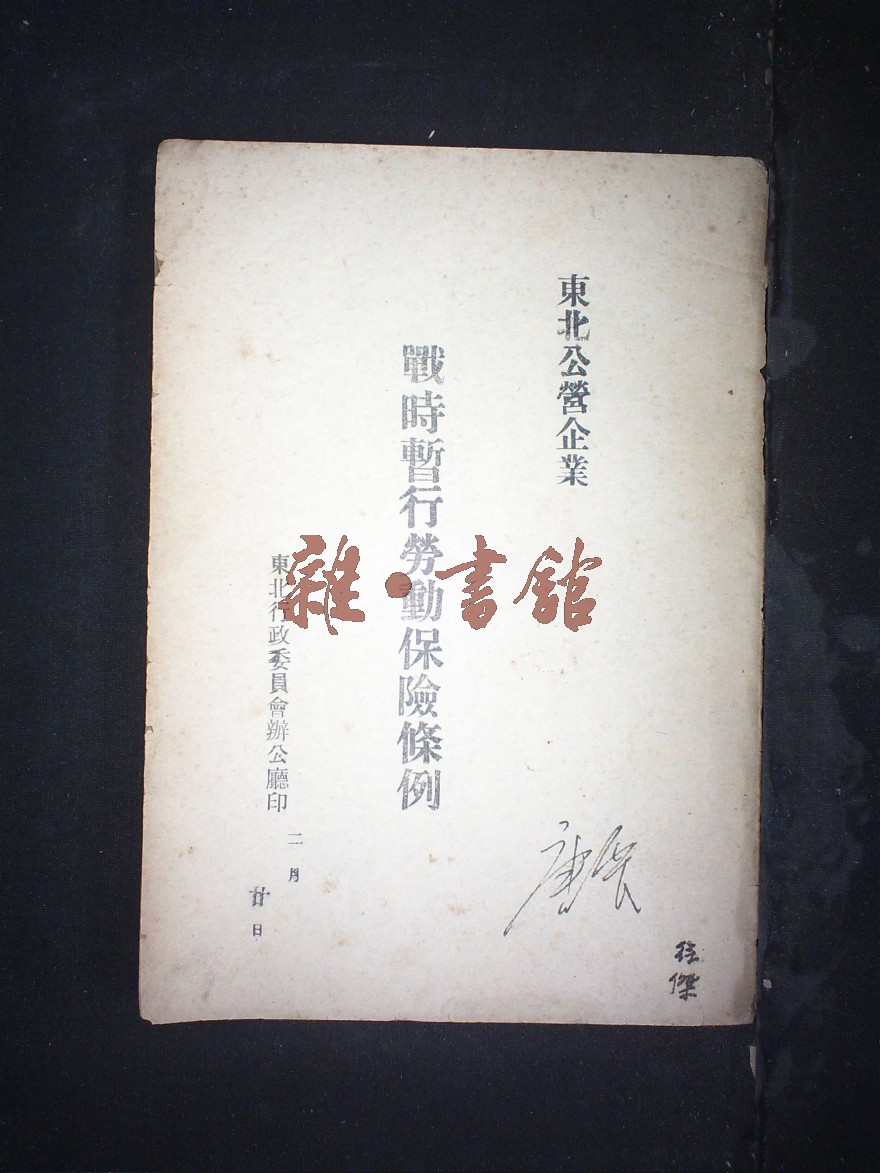 東北公營企業
戰時暫行勞動保險條例
東北行政委員會辦公廳印
二月
廿日
雜·書館
傑